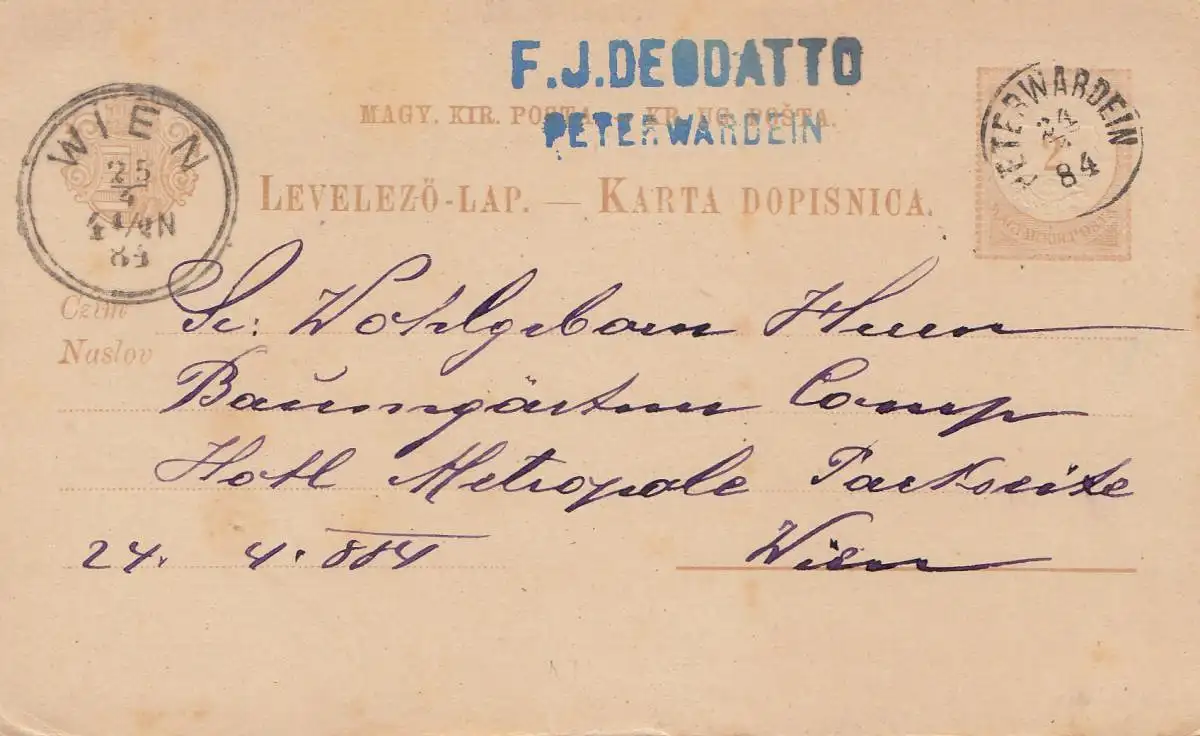 F.J.DEODATTO
MAGY. KIR. POSTA. — KR. UG. POŠTA.
PETERWARDEIN
WIEN
25
4
84
PETERWARDEIN
24
4
84
2
LEVELEZŐ-LAP. — KARTA DOPISNICA.
Czim
Naslov
Sr: Wohlgeborn Herrn
Baŭmgärtner Comp
Hotl Metropole Parkseite
24. 4. 884 Wien